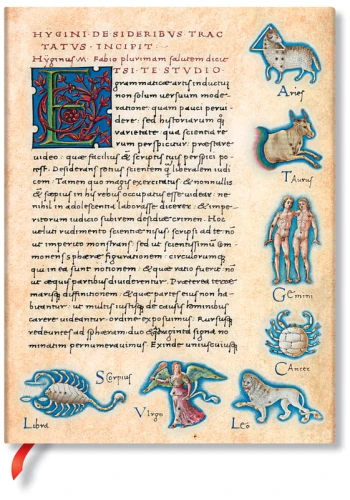 HYGINI · DE SIDERIBVS TRAC
TATVS · INCIPIT ·
Hyginus · M · Fabio plurimam salutem dicit
ETSI · TE STUDIO
grammaticae artis inductum
non solum versuum mode-
ratione · quam pauci pervi-
dere · sed historiarum q̃
varietate · qua scientia re
rum perspicitur · praestare
video · quae facilius & scriptis tuis perspici po-
test · Desiderans potius scientem q̃ liberalem iudi
cem · Tamen quo magis exercitatus & nonnullis
& saepius in his rebus occupatus esse videar · ne
nihil in adolescentia laborasse dicerer · & impe-
ritorum iudicio subirem desidiae crimen · Hoc
veluti rudimento scientiae nisus · scripsi ad te · nō
ut imperito monstrans · sed ut scientissimū com
monens · sphaerae figurationem · circulorumq̃
qui in ea sunt notionem · & quae ratio fuerit · nō
ut aequis partibus dividerentur ·
marisq̃ diffinitionem · & quae partes eius non ha
buantur · ut multis iustisq̃ de causis hominibus
carere videantur · ordine exposuimus · Rursusq̃
redeuntes ad sphaeram duo & quadraginta signa no
minatim pernumeravimus · Exinde uniuscuiusq̃
Aries
Taurus
Gemini
Cancer
Leo
Virgo
Scorpius
Libra